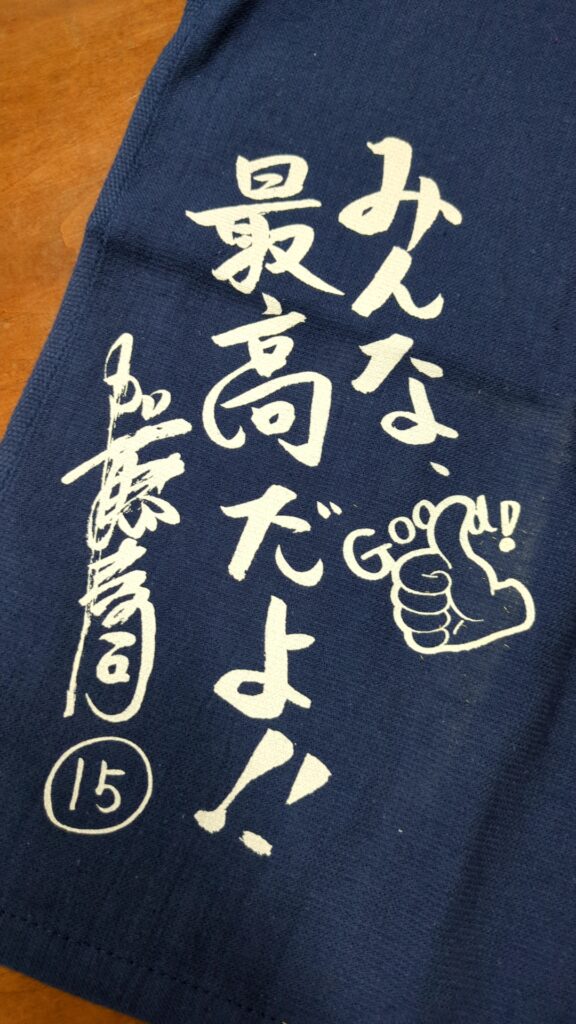 みんな、
Good!
最高だよ!!
加藤
15